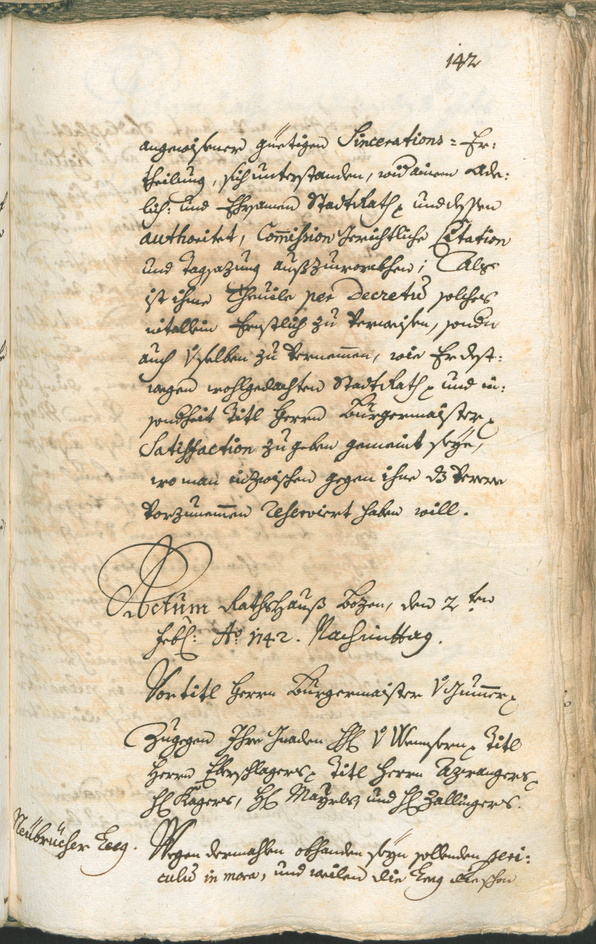 142
angewisener güetigen Sincerations=Er:
theilung, sich unterstanden, wid ainem Ade:
lich: und Ehrsamen StadtRath, und dessen
authoritet, Commission Gerichtliche Citation
und Tagsazung außzuwürkhen; Als
ist ihme Theüile per Decretũ solches
nit allein Ernstlich zu Verweisen, sondn
auch Vselben zu Vernemmen, wie Er dest:
wegen wohlgedachten StadtRath, und in:
sondheit Titl Herrn Burgermaister
Satisfaction zu geben gemeint seye,
wo man inzwischen gegen ihne dz Verere
Vorzunemmen reserviert haben will.
Actum Rathshauß Bozen, den 2ten
Feb: Ao 1742. Nachmittag.
Vor titl Herrn Burgermaister V Gummer
Zugegen Ihro Gnaden H V Wenser, Titl
Herrn Eberschlagers, Titl Herrn Azwangers,
H Kagers, H Mayrls, und H Zallingers.
Neübrücher Eeng.
Wegen dermahlen obhanden seyn sollenden peri:
culũ in mora, und weilen die Eeng die schon